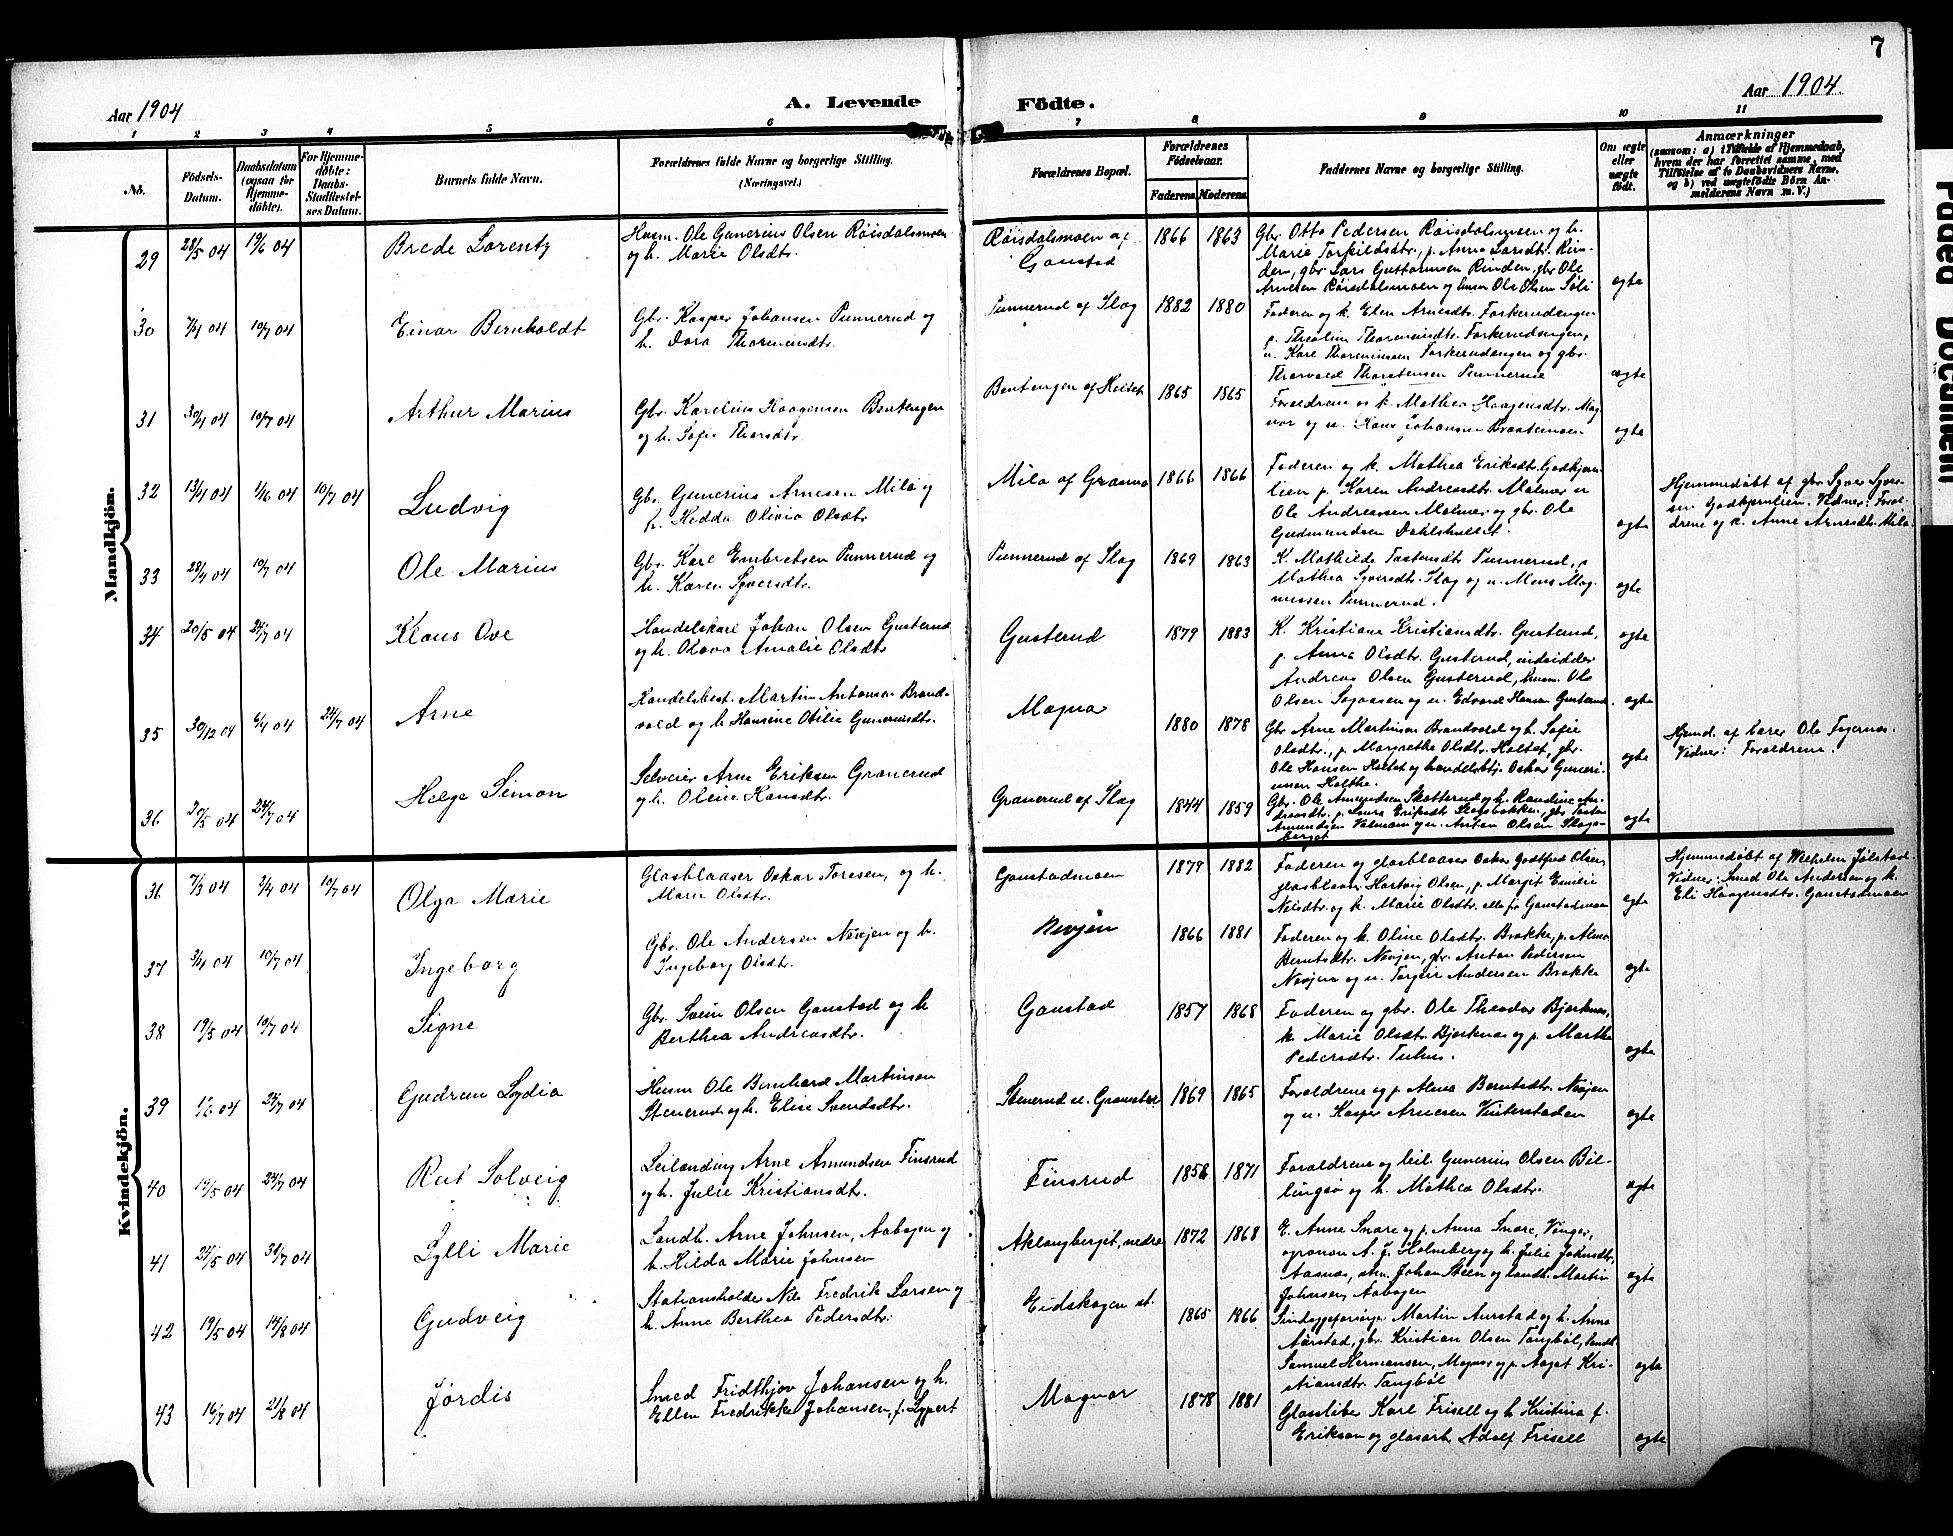 7
Aar 1904
A. Levende
Födte.
Aar 1904.
1 2 3 4 5 6 7 8 9 10 11
No.
Födsels-
Datum.
Daabsdatum
(ogsaa for
Hjemme-
døbte).
For Hjemme-
döbte:
Daabs-
Stadfæstel-
ses Datum.
Barnets fulde Navn.
Forældrenes fulde Navne og borgerlige Stilling.
(Næringsvei.)
Forældrenes Bopæl.
Forældrenes
Födselsaar.
Faderens
Moderens
Faddernes Navne og borgerlige Stilling.
Om ægte
eller
uægte
født.
Anmærkninger
(saasom: a) i Tilfælde af Hjemmedaab,
hvem der har forrettet samme, med
Tilføielse af to Daabsvidners Navne,
og b) ved uægtefødte Börn An-
melderens Navn m. V.)
Mandkjön.
29 28/5 04 19/6 04 Brede Lorentz
Husm. Ole Gunerius Olsen Röisdalsmoen
og h. Marie Olsdtr.
Röisdalsmoen af
Gaustad
1866 1863
Gbr. Otto Pedersen Röisdalsmoen og h.
Marie Torkildsdtr., p. Anna Larsdtr. Rin-
den, gbr. Lars Guttormsen Rinden, gbr Ole
Arnesen Röisdalsmoen og Ole Olsen Söli
ægte
30 7/4 04 10/7 04 Einar Bernholdt
Gbr. Kasper Johansen Punnerud og
h. Dora Thorenusdtr.
Punnerud af Slag
1882 1880
Faderen og k. Elen Arnesdtr. Forkerudengen
p. Theoline Thorenusdtr. Forkerudengen,
u. Karl Thorenussen Forkerudengen og gbr.
Thorvald Thorstensen Punnerud
ægte
31 30/4 04 10/7 04 Arthur Marius
Gbr. Karelius Haagensen Bentengen
og h. Sofie Thorsdtr.
Bentengen af Holtet
1865 1865
Forældrene og k. Mathea Haagensdtr. Mag-
nor og u. Hans Johansen Braatemoen
ægte
32 13/4 04 1/6 04 10/7 04 Ludvig
Gbr. Gunerius Arnesen Mila og
h. Hedda Olivia Olsdtr.
Mila af Grasmo
1866 1866
Faderen og k. Mathea Eriksdtr. Godkjern-
lien p. Karen Andreasdtr. Malmer u
Ole Andreassen Malmer og gbr. Ole
Gudmundsen Dahlshullet.
ægte
Hjemmedöbt af gbr. Syver Syver-
sen Godkjernlien. Vidner: Foræl-
drene og k. Anne Arnesdtr. Mila.
33 28/4 04 10/7 04 Ole Marius
Gbr. Karl Embretsen Punnerud og
h. Karen Syversdtr.
Punnerud af Slag
1869 1863
K. Mathilde Tostensdtr. Punnerud, p
Mathea Syversdtr. Slag og u. Mons Mag-
nussen Punnerud.
ægte
34 20/5 04 24/7 04 Klaus Ove
Handelskarl Johan Olsen Gusterud
og h. Olava Amalie Olsdtr
Gusterud
1879 1883
K. Kristiane Kristiansdtr. Gusterud,
p. Anna Olsdtr. Gusterud, indsidder
Andreas Olsen Gusterud, husm. Ole
Olsen og u. Edvard Hansen Gusterud.
ægte
35 30/12 04 6/4 04 24/7 04 Arne
Handelsbest. Martin Antonsen Brand-
vold og h Hansine Otilie Gunerusdtr.
Magnor
1880 1878
ægte
Gbr Arne Martinsen Brandvold og h. Sofie
Olsdtr., p. Margrethe Olsdtr. Holtet, gbr.
Ole Hansen Holtet og handelsbtj. Oskar Guneri-
ussen Holthe.
ægte
Hjemd. af Lærer Ole Fagernæs.
Vidner: Forældrene.
36 20/5 04 24/7 04 Helge Simon
Selveier Arne Eriksen Granerud
og h. Oleine Hansdtr.
Granerud af Slag
1844 1859
Gbr. Ole Amundsen Skotterud og h. Randine An-
dreasdtr. p. Laura Eriksdtr. Slagsbakken, gbr. Tosten
Amundsen og u. Anton Olsen Slags-
berget
ægte
Kvindekjön.
36 7/3 04 3/4 04 10/7 04 Olga Marie
Glasblaaser Oskar Toresen, og h.
Marie Olsdtr.
Gaustadmoen
1879 1882
Faderen og glasblaaser Oskar Godtfred Olsen,
glasblaaser Hartvig Olsen, p. Margit Emilie
Nilsdtr. og k. Marie Olsdtr. alle fr. Gaustadmoen
ægte
Hjemmedöbt af Wilhelm Jölstad
Vidner: Smed Ole Andersen og k.
Eli Haagensdtr. Gaustadmoen
37 3/4 04 10/7 04 Ingeborg
Gbr. Ole Andersen Nevjen og h.
Ingeborg Olsdtr.
Nevjen
1866 1881
Faderen og k. Oline Olsdtr. Brokke, p. Alma
Berntsdtr. Nevjen, gbr. Anton Pedersen
Nevjen og u. Torgeir Andersen Brokke
ægte
38 19/5 04 10/7 04 Signe
Gbr. Svein Olsen Gaustad og h
Berthea Andreasdtr.
Gaustad
1857 1868
Faderen og gbr. Ole Theodor Bjerknes,
k. Marie Olsdtr. Bjerknes og p. Marthe
Pedersdtr. Tuhus.
ægte
39 1/6 04 24/7 04 Gudrun Lydia
Husm Ole Bernhard Martinsen
Stenerud og h. Elise Svendsdtr.
Stenerud u. Gransted
1869 1865
Forældrene og p. Alma Berntsdtr. Nevjen
og u. Kasper Arnesen Vinterstaden
ægte
40 19/5 04 24/7 04 Rut Solveig
Leilænding Arne Amundsen Finsrud
og h. Julie Kristiansdtr.
Finsrud
1856 1871
Forældrene og leil. Gunerius Olsen Bil-
lingsö og h. Mathea Olsdtr.
ægte
41 24/5 04 30/7 04 Lylli Marie
Landh. Arne Johnsen, Aabogen og
h. Hilda Marie Johnsen
Aklangberget, nedre
1872 1868
E. Anne Snare og p. Anna Snare, Vinger,
A. J. Holmberg og h. Julie Johnsdtr.
Aasnæs, Johan Steen og landh. Martin
Johnsen, Aabogen
ægte
42 19/5 04 14/8 04 Gudveig
Stationsholder Nils Fredrik Larsen og
h. Anne Berthea Pedersdtr.
Eidskogen st.
1865 1866
Martin Aurstad og h. Anna
Aurstad, gbr. Kristian Olsen Tangböl, landh.
Samuel Hermansen, Magnor og p. Aaget Kri-
stiansdtr. Tangböl
ægte
43 16/7 04 21/8 04 Jordis
Smed Fridthjov Johansen og h.
Ellen Fredrikke Johansen, f. Lypert
Magnor
1878 1881
Glassliber Karl Frisell og h Kristina f.
Erikson og glasarb. Adolf Frisell
ægte
Faded Document